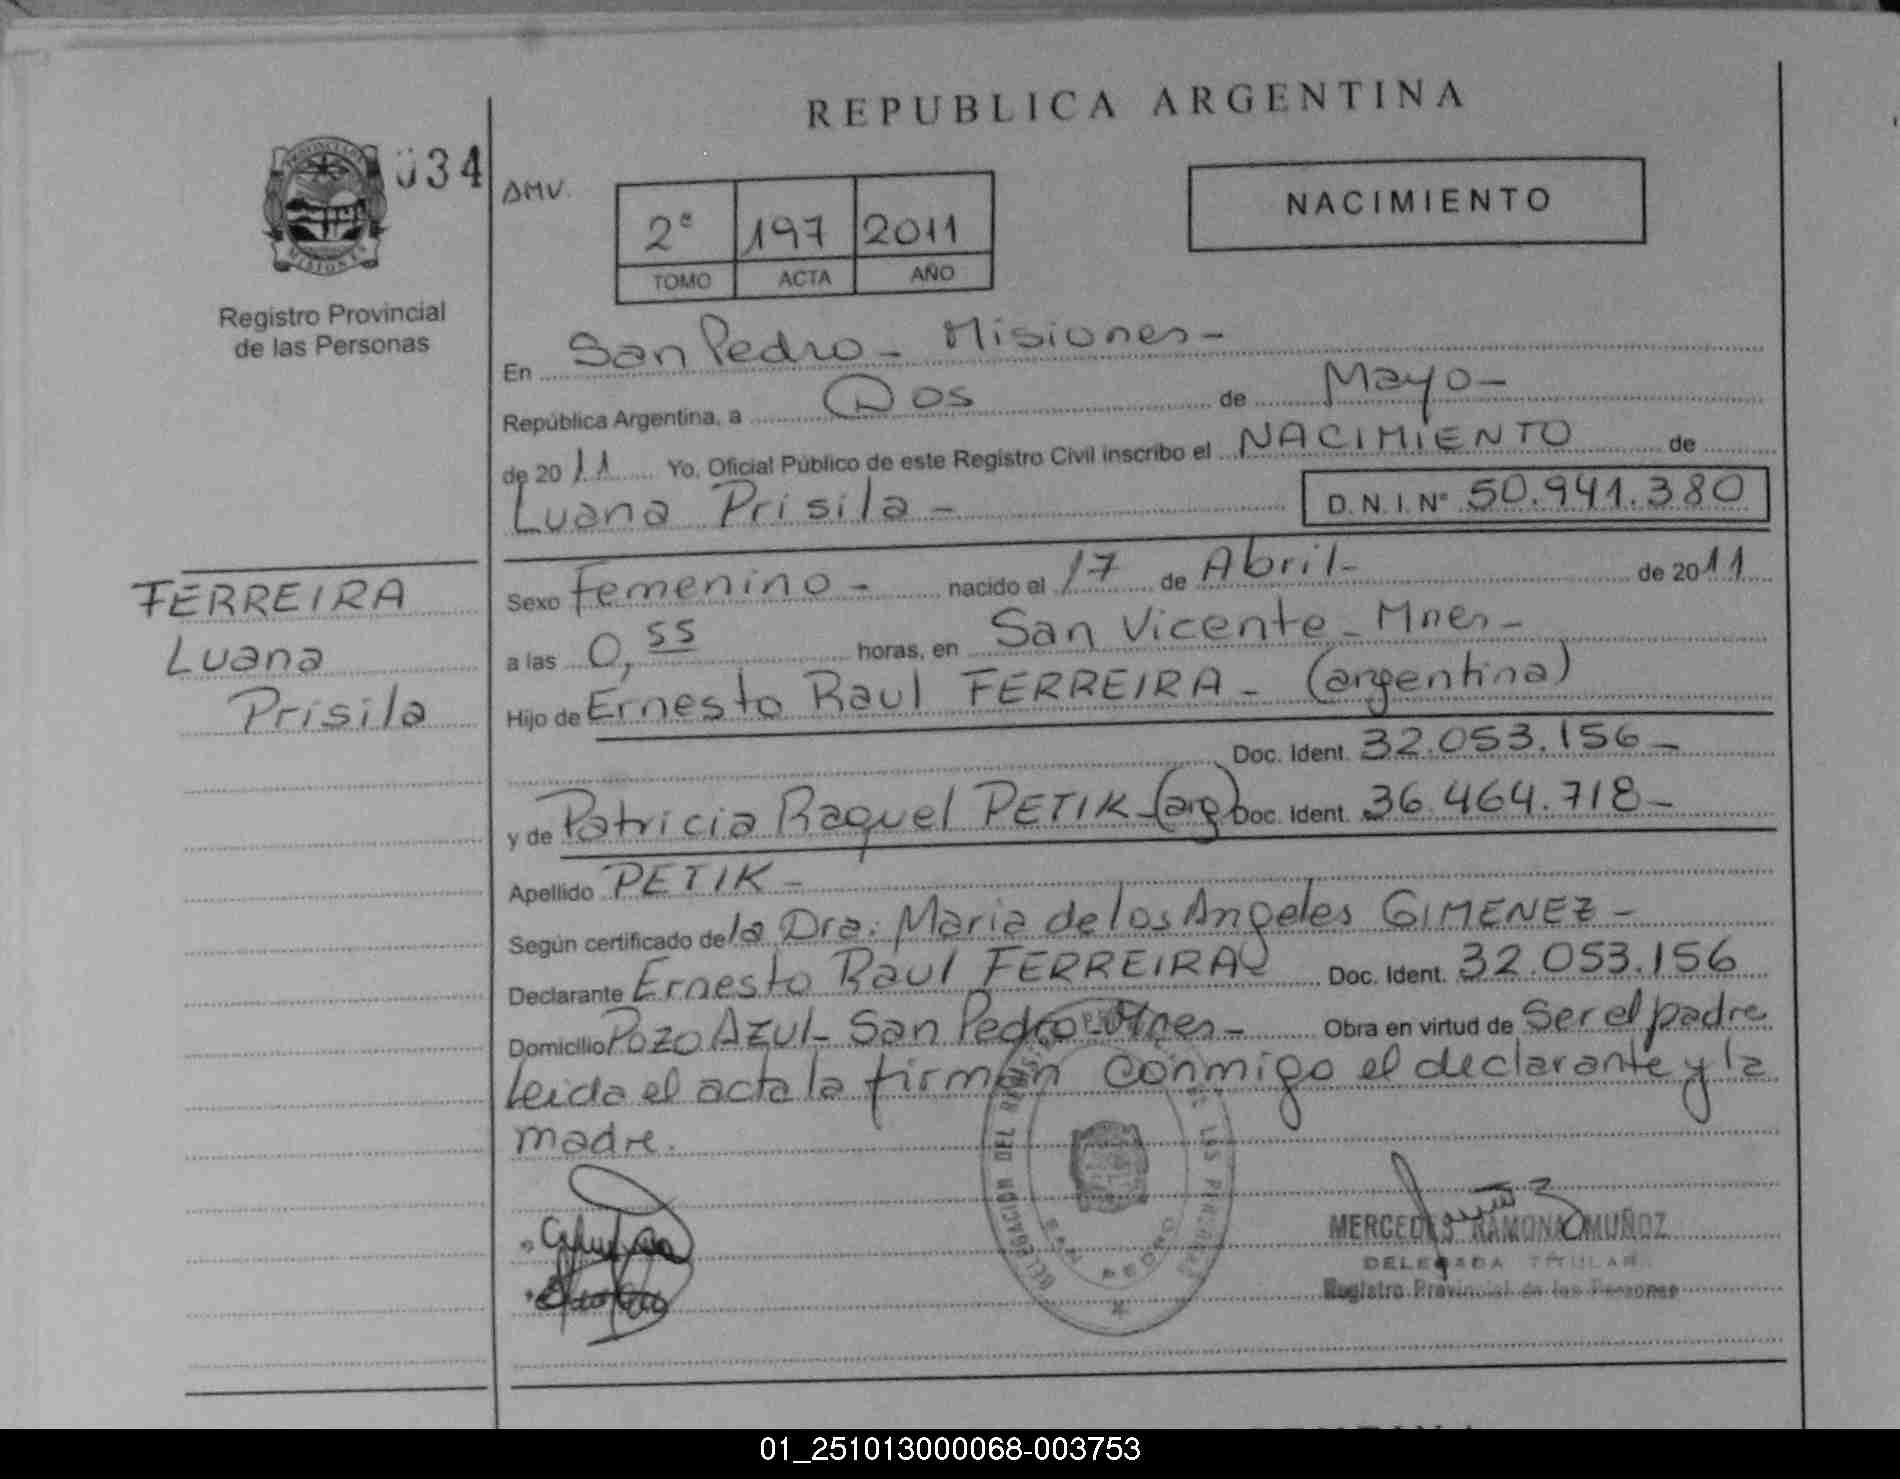 REPUBLICA ARGENTINA
034
DMV.
2º 197 2011
TOMO ACTA AÑO
NACIMIENTO
PROVINCIA DE
MISIONES
Registro Provincial
de las Personas
En San Pedro - Misiones -
República Argentina, a Dos de Mayo -
de 2011 Yo, Oficial Público de este Registro Civil inscribo el NACIMIENTO de
Luana Prisila - D.N.I.Nº 50.941.380
FERREIRA
Luana
Prisila
Sexo Femenino - nacido el 17 de Abril - de 2011
a las 0,55 horas, en San Vicente - Mnes -
Hijo de Ernesto Raul FERREIRA - (argentina)
Doc. Ident. 32.053.156 -
y de Patricia Raquel PETIK - (arg) Doc. Ident. 36.464.718 -
Apellido PETIK -
Según certificado de la Dra: Maria de los Angeles GIMENEZ -
Declarante Ernesto Raul FERREIRA Doc. Ident. 32.053.156
Domicilio Pozo Azul - San Pedro - Mnes - Obra en virtud de Ser el padre
Leida el acta la firman conmigo el declarante y la
madre.
DELEGACION DEL LAS PERSONAS
SAN PEDRO
MERCEDES RAMONA MUÑOZ
DELEGADA TITULAR
Registro Provincial de las Personas
01_251013000068-003753